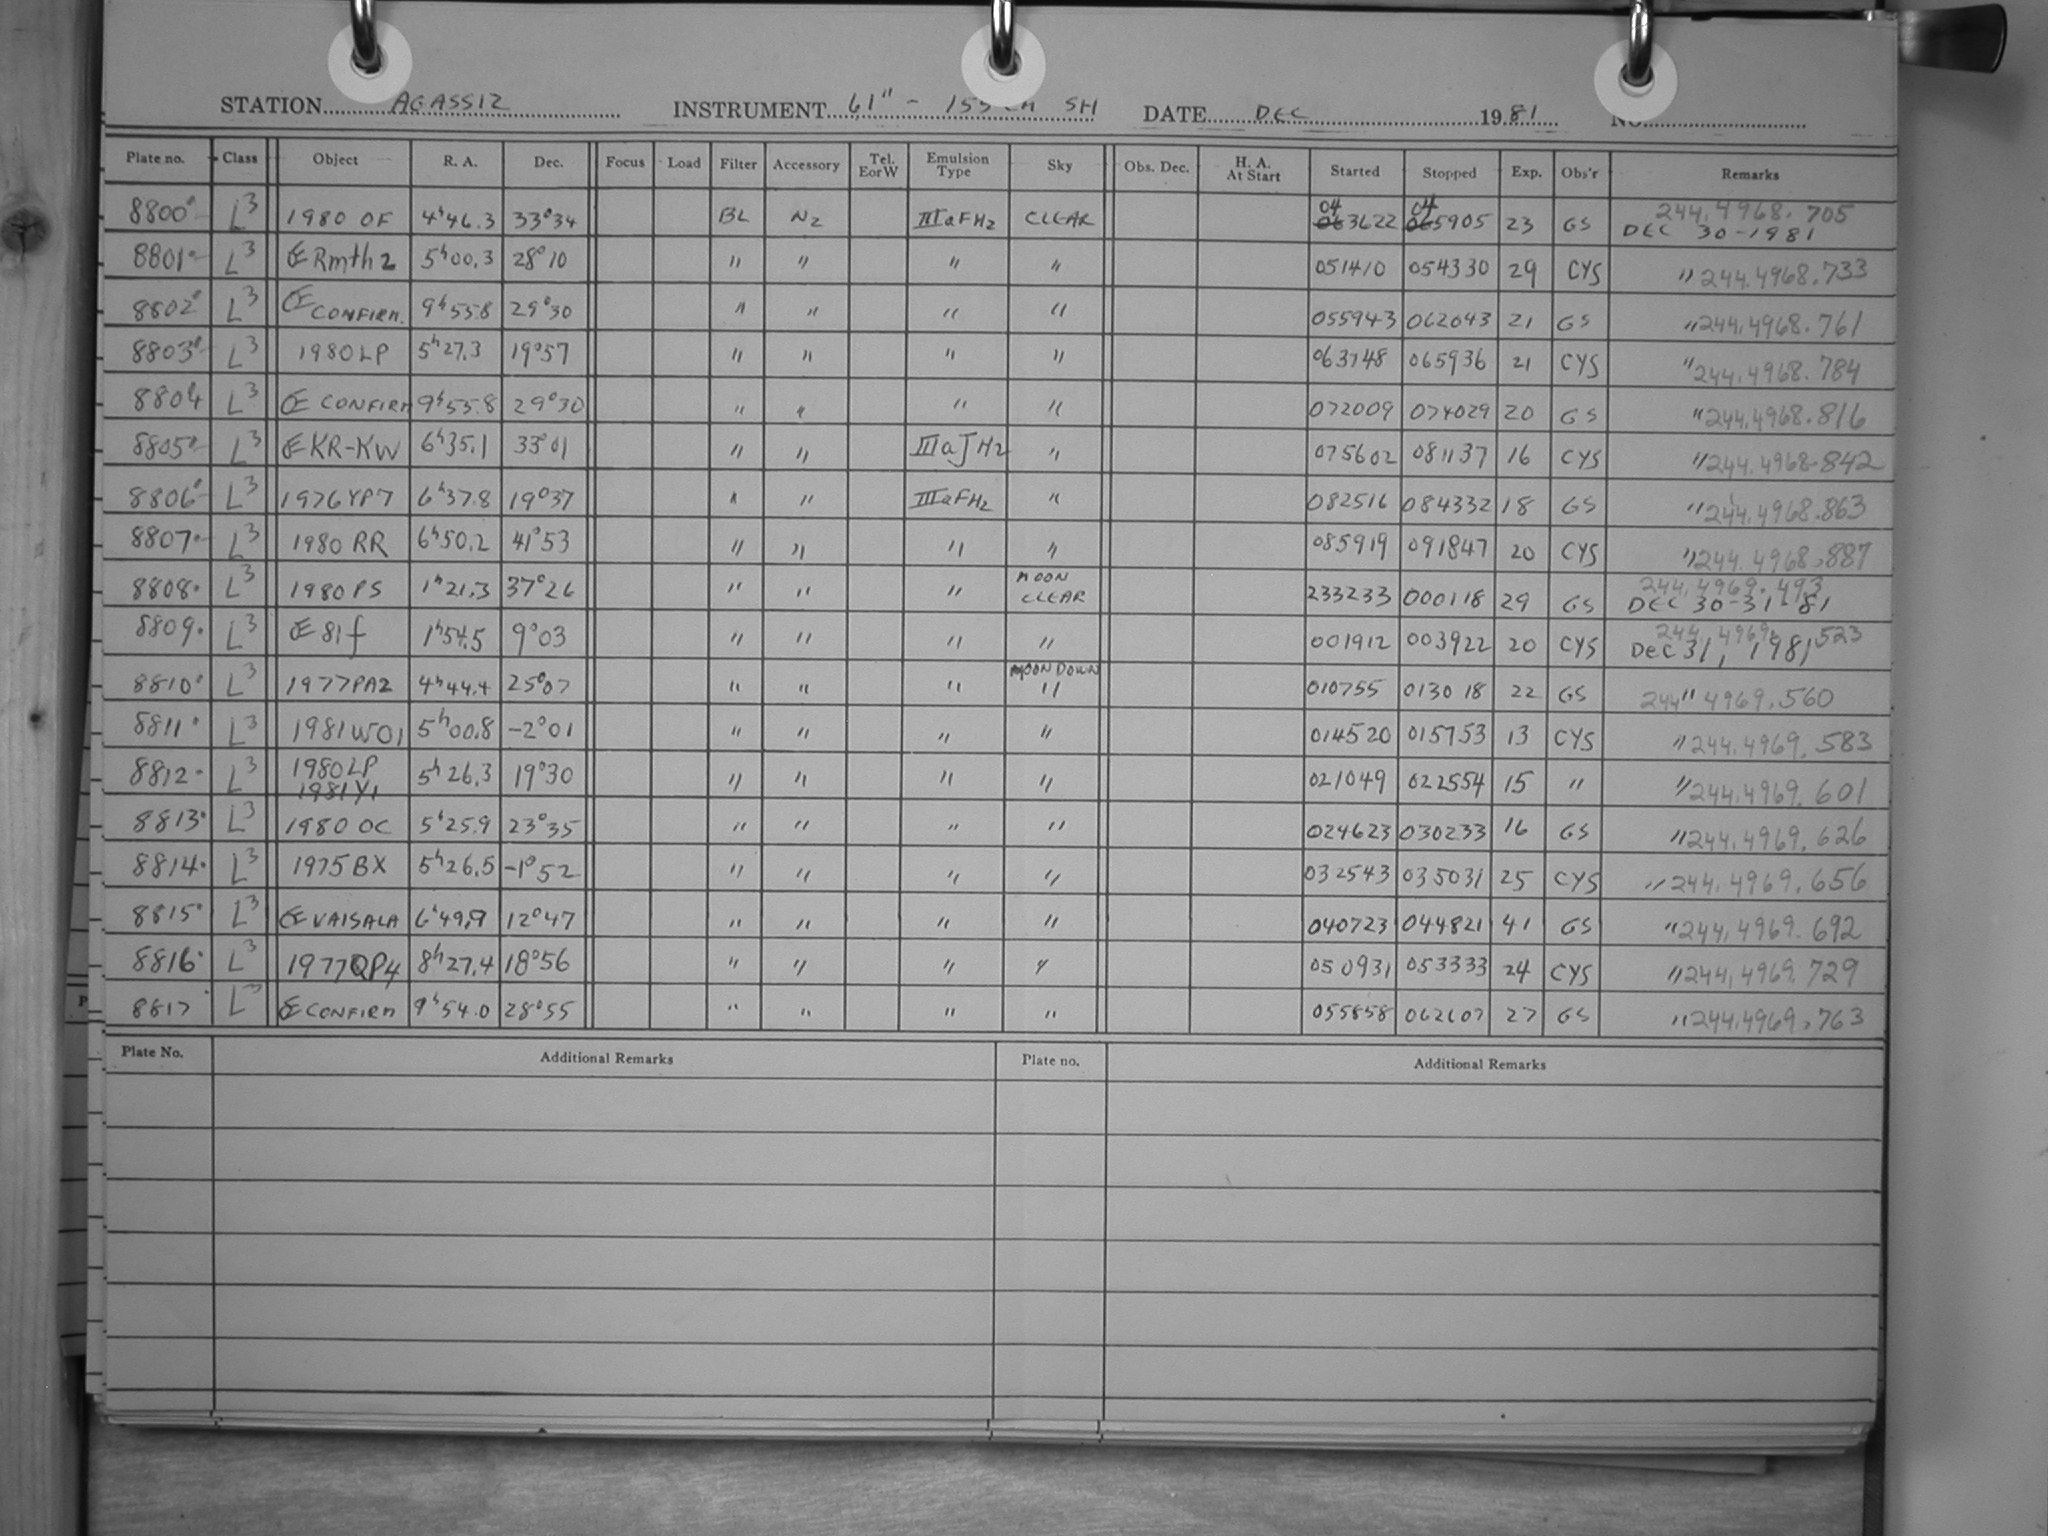 STATION AGASSIZ INSTRUMENT 61" - 155 CM SH DATE DEC 1981 NO.
Plate no. Class Object R. A. Dec. Focus Load Filter Accessory Tel. E or W Emulsion Type Sky Obs. Dec. H. A. At Start Started Stopped Exp. Obs'r Remarks
8800 L3 1980 OF 4h46.3 33°34 BL N2 IIIaFH2 CLEAR 043622 045905 23 GS 244.4968.705 DEC 30-1981
8801 L3 Œ Rmth2 5h00.3 28°10 " " " " 051410 054330 29 CYS " 244.4968.733
8802 L3 Œ CONFIRM. 9h55.8 29°30 " " " " 055943 062043 21 GS " 244.4968.761
8803 L3 1980LP 5h27.3 19°57 " " " " 063748 065936 21 CYS " 244.4968.784
8804 L3 Œ CONFIRM 9h55.8 29°30 " " " " 072009 074029 20 GS " 244.4968.816
8805 L3 Œ KR-KW 6h35.1 33°01 " " IIIaJH2 " 075602 081137 16 CYS " 244.4968.842
8806 L3 1976YP7 6h37.8 19°37 " " IIIaFH2 " 082516 084332 18 GS " 244.4968.863
8807 L3 1980 RR 6h50.2 41°53 " " " " 085919 091847 20 CYS " 244.4968.887
8808 L3 1980PS 1h21.3 37°26 " " " MOON CLEAR 233233 000118 29 GS 244.4969.493 DEC 30-31-81
8809 L3 Œ 81f 1h54.5 9°03 " " " " 001912 003922 20 CYS 244.4969.523 DEC 31, 1981
8810 L3 1977PA2 4h44.4 25°07 " " " MOON DOWN " 010755 013018 22 GS 244 " 4969.560
8811 L3 1981WO1 5h00.8 -2°01 " " " " 014520 015753 13 CYS " 244.4969.583
8812 L3 1980LP 1981Y1 5h26.3 19°30 " " " " 021049 022554 15 " " 244.4969.601
8813 L3 1980 OC 5h25.9 23°35 " " " " 024623 030233 16 GS " 244.4969.626
8814 L3 1975BX 5h26.5 -1°52 " " " " 032543 035031 25 CYS " 244.4969.656
8815 L3 Œ VAISALA 6h49.9 12°47 " " " " 040723 044821 41 GS " 244.4969.692
8816 L3 1977QP4 8h27.4 18°56 " " " " 050931 053333 24 CYS " 244.4969.729
8817 L3 Œ CONFIRM 9h54.0 28°55 " " " " 055858 062607 27 GS " 244.4969.763
Plate No. Additional Remarks Plate no. Additional Remarks